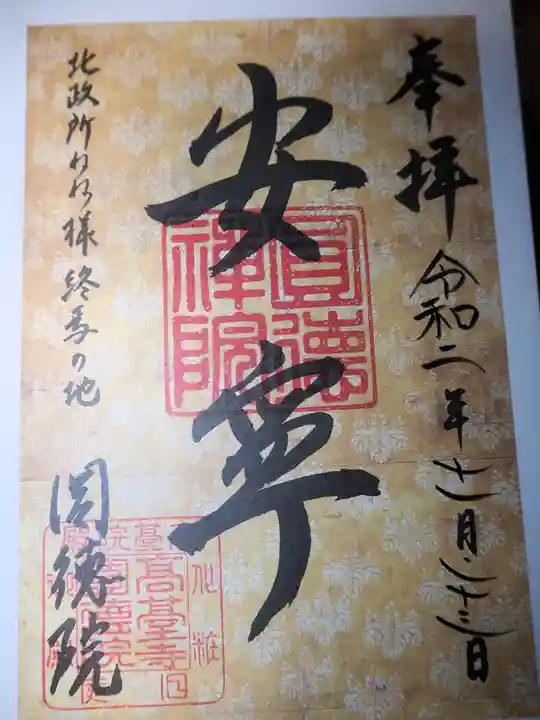 奉拝 令和二年十一月二十三日
安寧
圓徳禅院
北政所ねね様終焉の地
圓徳院
高臺寺